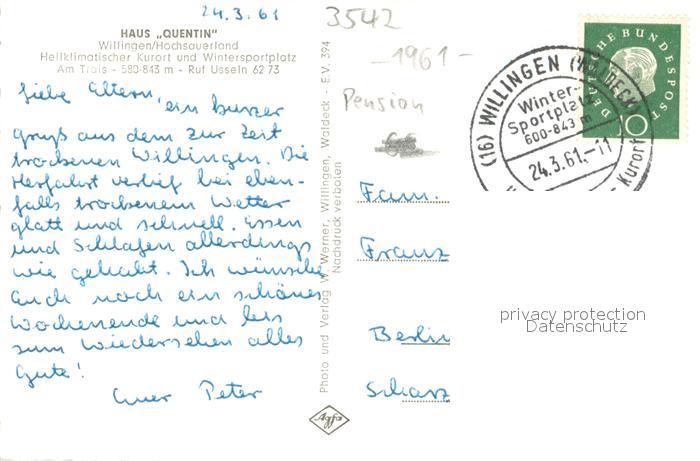 24.3.61
HAUS „QUENTIN"
Willingen/Hochsauerland
Heilklimatischer Kurort und Wintersportplatz
Am Trais - 580-843 m - Ruf Usseln 62 73
Liebe Eltern, ein kurzer
Gruß aus dem zur Zeit
trockenen Willingen. Die
Herfahrt verlief bei eben-
falls trockenem Wetter
glatt und schnell. Essen
und Schlafen allerdings
wie gehabt. Ich wünsche
Euch noch ein schönes
Wochenende und bis
zum Wiedersehen alles
Gute!
Euer Peter
Photo und Verlag W. Werner, Willingen, Waldeck - E.V. 394
Nachdruck verboten
Agfa
3542
-1961-
Pension
Fam.
Franz
Berlin
Scharz
(16) WILLINGEN
Winter-
Sportplatz
600-843 m
24.3.61.-11
Kurort
DEUTSCHE BUNDESPOST
10
privacy protection
Datenschutz